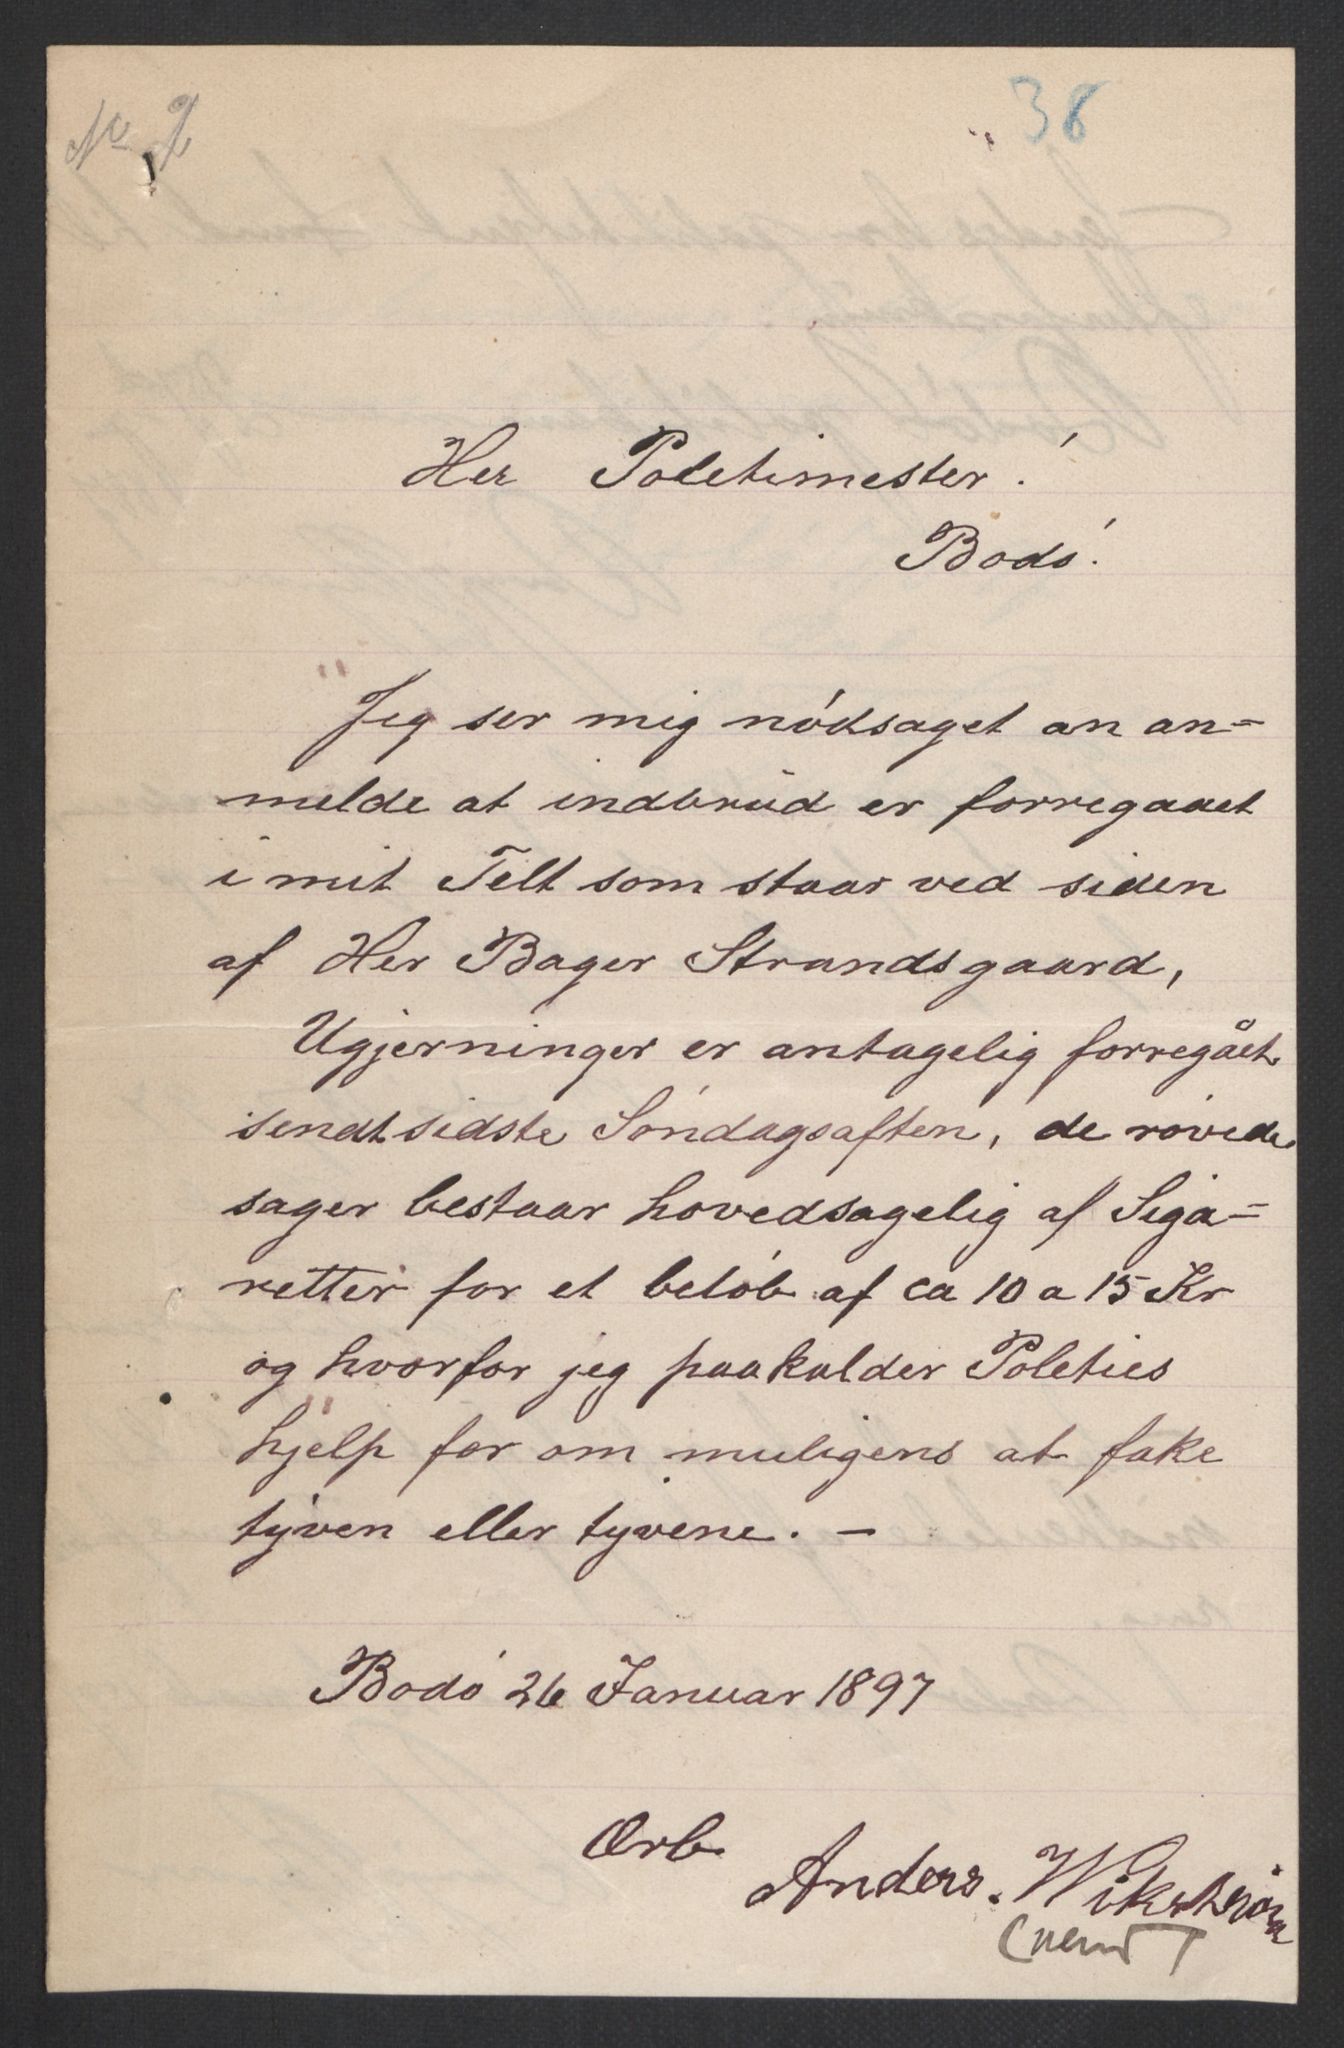 No 2
38
Her Poletimester!
Bodó!
Jeg ser mig nódsaget an an=
melde at indbrúd er forregaaet
i mit Telt som staar ved siden
af Her Bager Strandsgaard,
Ugjerninger er antagelig forregået
sendt sidste Sóndagsaften, de róvede
sager bestaar hovedsagelig af Siga=
retter for et belób af ca 10 a 15 Kr
og hvorfor jeg paakalder Poleties
hjelp for om muligens at fake
tyven eller tyvene. —
Bodó 26 Januar 1897
Ærb
Anders. Wikström
(vend)